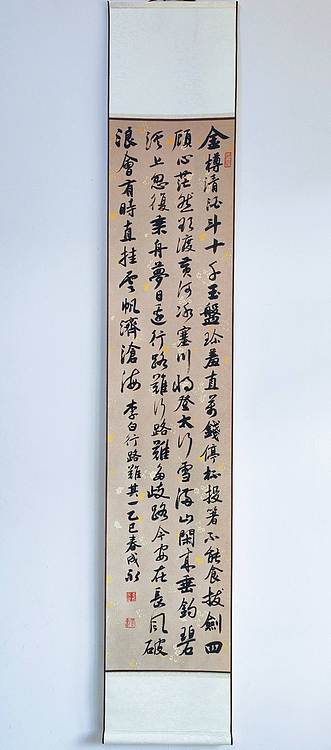 金樽清酒斗十千玉盤珍羞直萬錢停杯投著不能食拔劍四
顧心茫然欲渡黄河冰塞川將登太行雪滿山閑來垂釣碧
溪上忽復乘舟夢日邊行路難行路難多歧路今安在長風破
浪會有時直挂雲帆濟滄海 李白行路難其一乙巳春成永